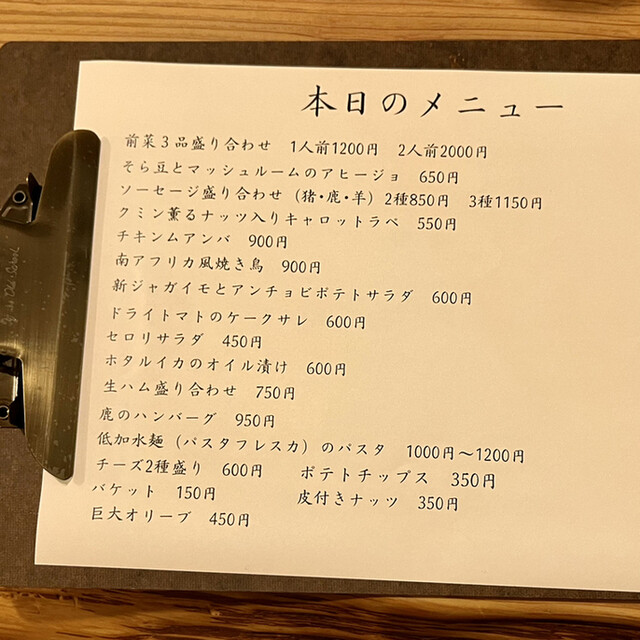 本日のメニュー
前菜3品盛り合わせ 1人前1200円 2人前2000円
そら豆とマッシュルームのアヒージョ 650円
ソーセージ盛り合わせ（猪・鹿・羊）2種850円 3種1150円
クミン薫るナッツ入りキャロットラペ 550円
チキンムアンバ 900円
南アフリカ風焼き鳥 900円
新ジャガイモとアンチョビポテトサラダ 600円
ドライトマトのケークサレ 600円
セロリサラダ 450円
ホタルイカのオイル漬け 600円
生ハム盛り合わせ 750円
鹿のハンバーグ 950円
低加水麺（パスタフレスカ）のパスタ 1000円～1200円
チーズ2種盛り 600円 ポテトチップス 350円
バケット 150円 皮付きナッツ 350円
巨大オリーブ 450円